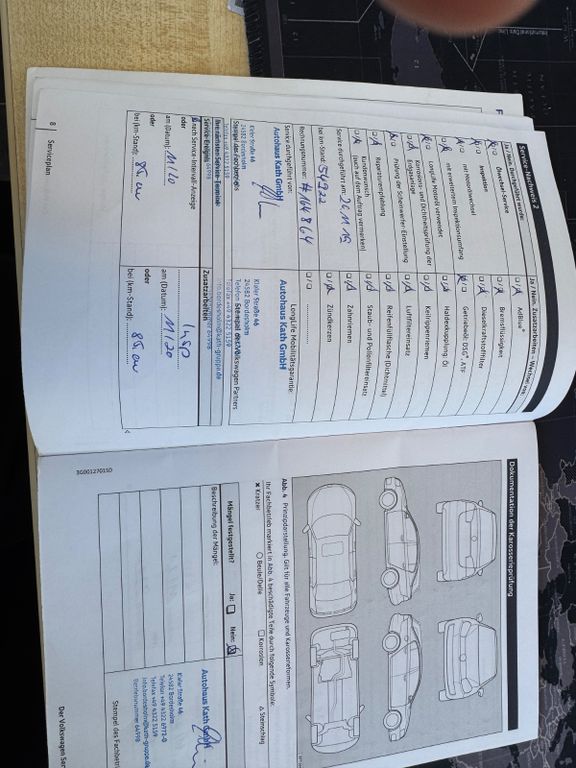 Service-Nachweis 2
Ja / Nein. Durchgeführt wurde:
Ölwechsel-Service
Inspektion
mit Motorölwechsel
mit erweitertem Inspektionsumfang
LongLife Motoröl verwendet
Korrosions- und Dichtheitsprüfung der
Erdgasanlage
Prüfung der Scheinwerfer-Einstellung
Reparaturempfehlung
Kundenwunsch
(auch auf dem Auftrag vermerken)
Service durchgeführt am: 26.11.19
bei km-Stand: 54922
Rechnungsnummer: #164864
Service durchgeführt von:
Autohaus Kath GmbH
Kieler Straße 46
24582 Bordesholm
Service-Ereignis
nach Service-Intervall-Anzeige
oder
am (Datum): 11/20
oder
bei (km-Stand):
8 Serviceplan
Ja / Nein. Zusatzarbeiten – Wechsel von:
AdBlue®
Bremsflüssigkeit
Dieselkraftstofffilter
Getriebeöl: DSG®, ATF
Haldexkupplung: Öl
Keilrippenriemen
Luftfiltereinsatz
Reifenfüllflasche (Dichtmittel)
Staub- und Pollenfiltereinsatz
Zahnriemen
Zündkerzen
LongLife Mobilitätsgarantie:
Autohaus Kath GmbH
Kieler Straße 46
24582 Bordesholm
Zusatzarbeiten
Insp
am (Datum): 11/20
oder
bei (km-Stand):
Dokumentation der Karosserieprüfung
Abb. 4 Prinzipdarstellung. Gilt für alle Fahrzeuge und Karosserieformen.
Ihr Fachbetrieb markiert in Abb. 4 beschädigte Teile durch folgende Symbole:
× Kratzer ○ Beule/Delle □ Korrosion △ Steinschlag
Mängel festgestellt? Ja: Nein:
Beschreibung der Mängel:
Autohaus Kath GmbH
Kieler Straße 46
24582 Bordesholm
Telefon +49 4322 6972-0
Telefax +49 4322 5159
info.bordesholm@kath-gruppe.de
Betriebsnummer 64998
Stempel des Fachbetri
Der Volkswagen Ser
3G0012701SD